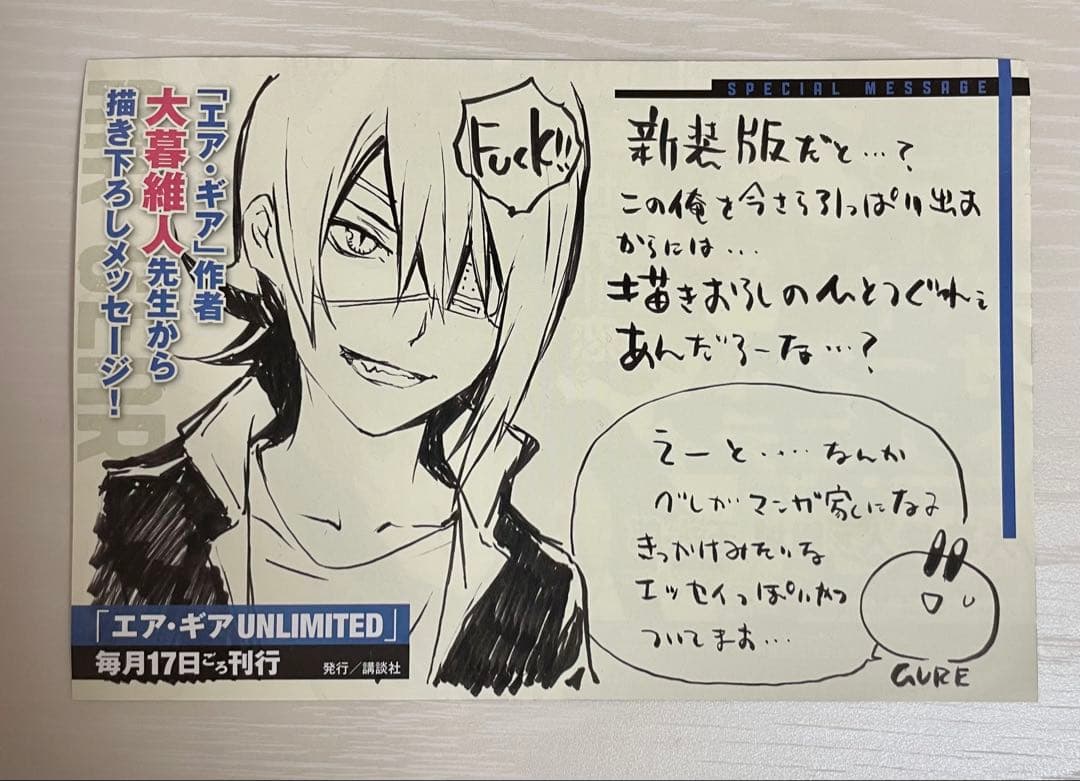 「エア・ギア」作者
大暮維人先生から
描き下ろしメッセージ！
Fuck!!
SPECIAL MESSAGE
新装版だと…？
この俺を今さら引っぱり出す
からには…
描きおろしのひとつぐれぇ
あんだろーな…？
えーと‥‥なんか
グレがマンガ家になる
きっかけみたいな
エッセイっぽいやつ
ついてます…
GURE
「エア・ギア UNLIMITED」
毎月17日ごろ刊行
発行／講談社